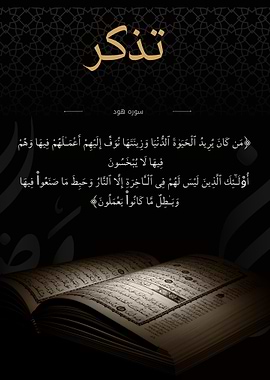 تذكر
سوره هود
﴿مَن كَانَ يُرِيدُ ٱلْحَيَوٰةَ ٱلدُّنْيَا وَزِينَتَهَا نُوَفِّ إِلَيْهِمْ أَعْمَـٰلَهُمْ فِيهَا وَهُمْ
فِيهَا لَا يُبْخَسُونَ
أُو۟لَـٰٓئِكَ ٱلَّذِينَ لَيْسَ لَهُمْ فِى ٱلْـَٔاخِرَةِ إِلَّا ٱلنَّارُ وَحَبِطَ مَا صَنَعُوا۟ فِيهَا
وَبَـٰطِلٌ مَّا كَانُوا۟ يَعْمَلُونَ﴾